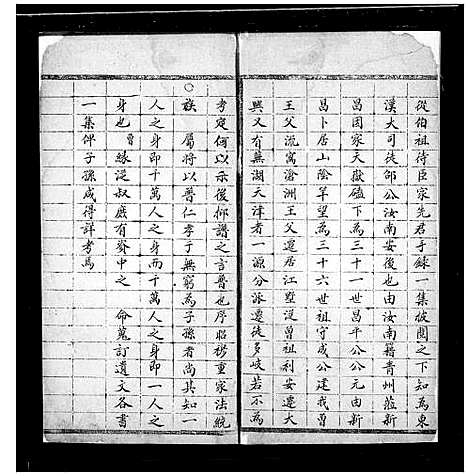 從伯祖待臣家先君手錄一集披閱之下知為東
漢大司徒邵公汝南安後也由汝南籍青州蒞新
昌因家天嶽磕下為三十一世昌平公公元由新
昌卜居山陰羊望為三十六世祖守成公建我曾
王父流寓滄洲王父遷居江墅從曾祖利安遷大
興又有蕪湖天津者一源分派遷徒多岐若不為
考定何以示後仰譜之言普也序昭穆重家法統
○族屬將以普仁孝于無窮為子孫者尚其知一
人之身即千萬人之身而千萬人之身即一人之
身也曾緣從叔廉有資中之命蒐訂遺文各書
一集俾子孫咸得詳考焉